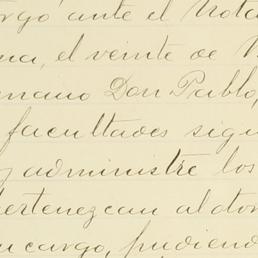 orgó ante el Nota
na, el veinte de
mano Don Pablo,
facultades sigu
y administre los
pertenezcan al don
u cargo, pudiend